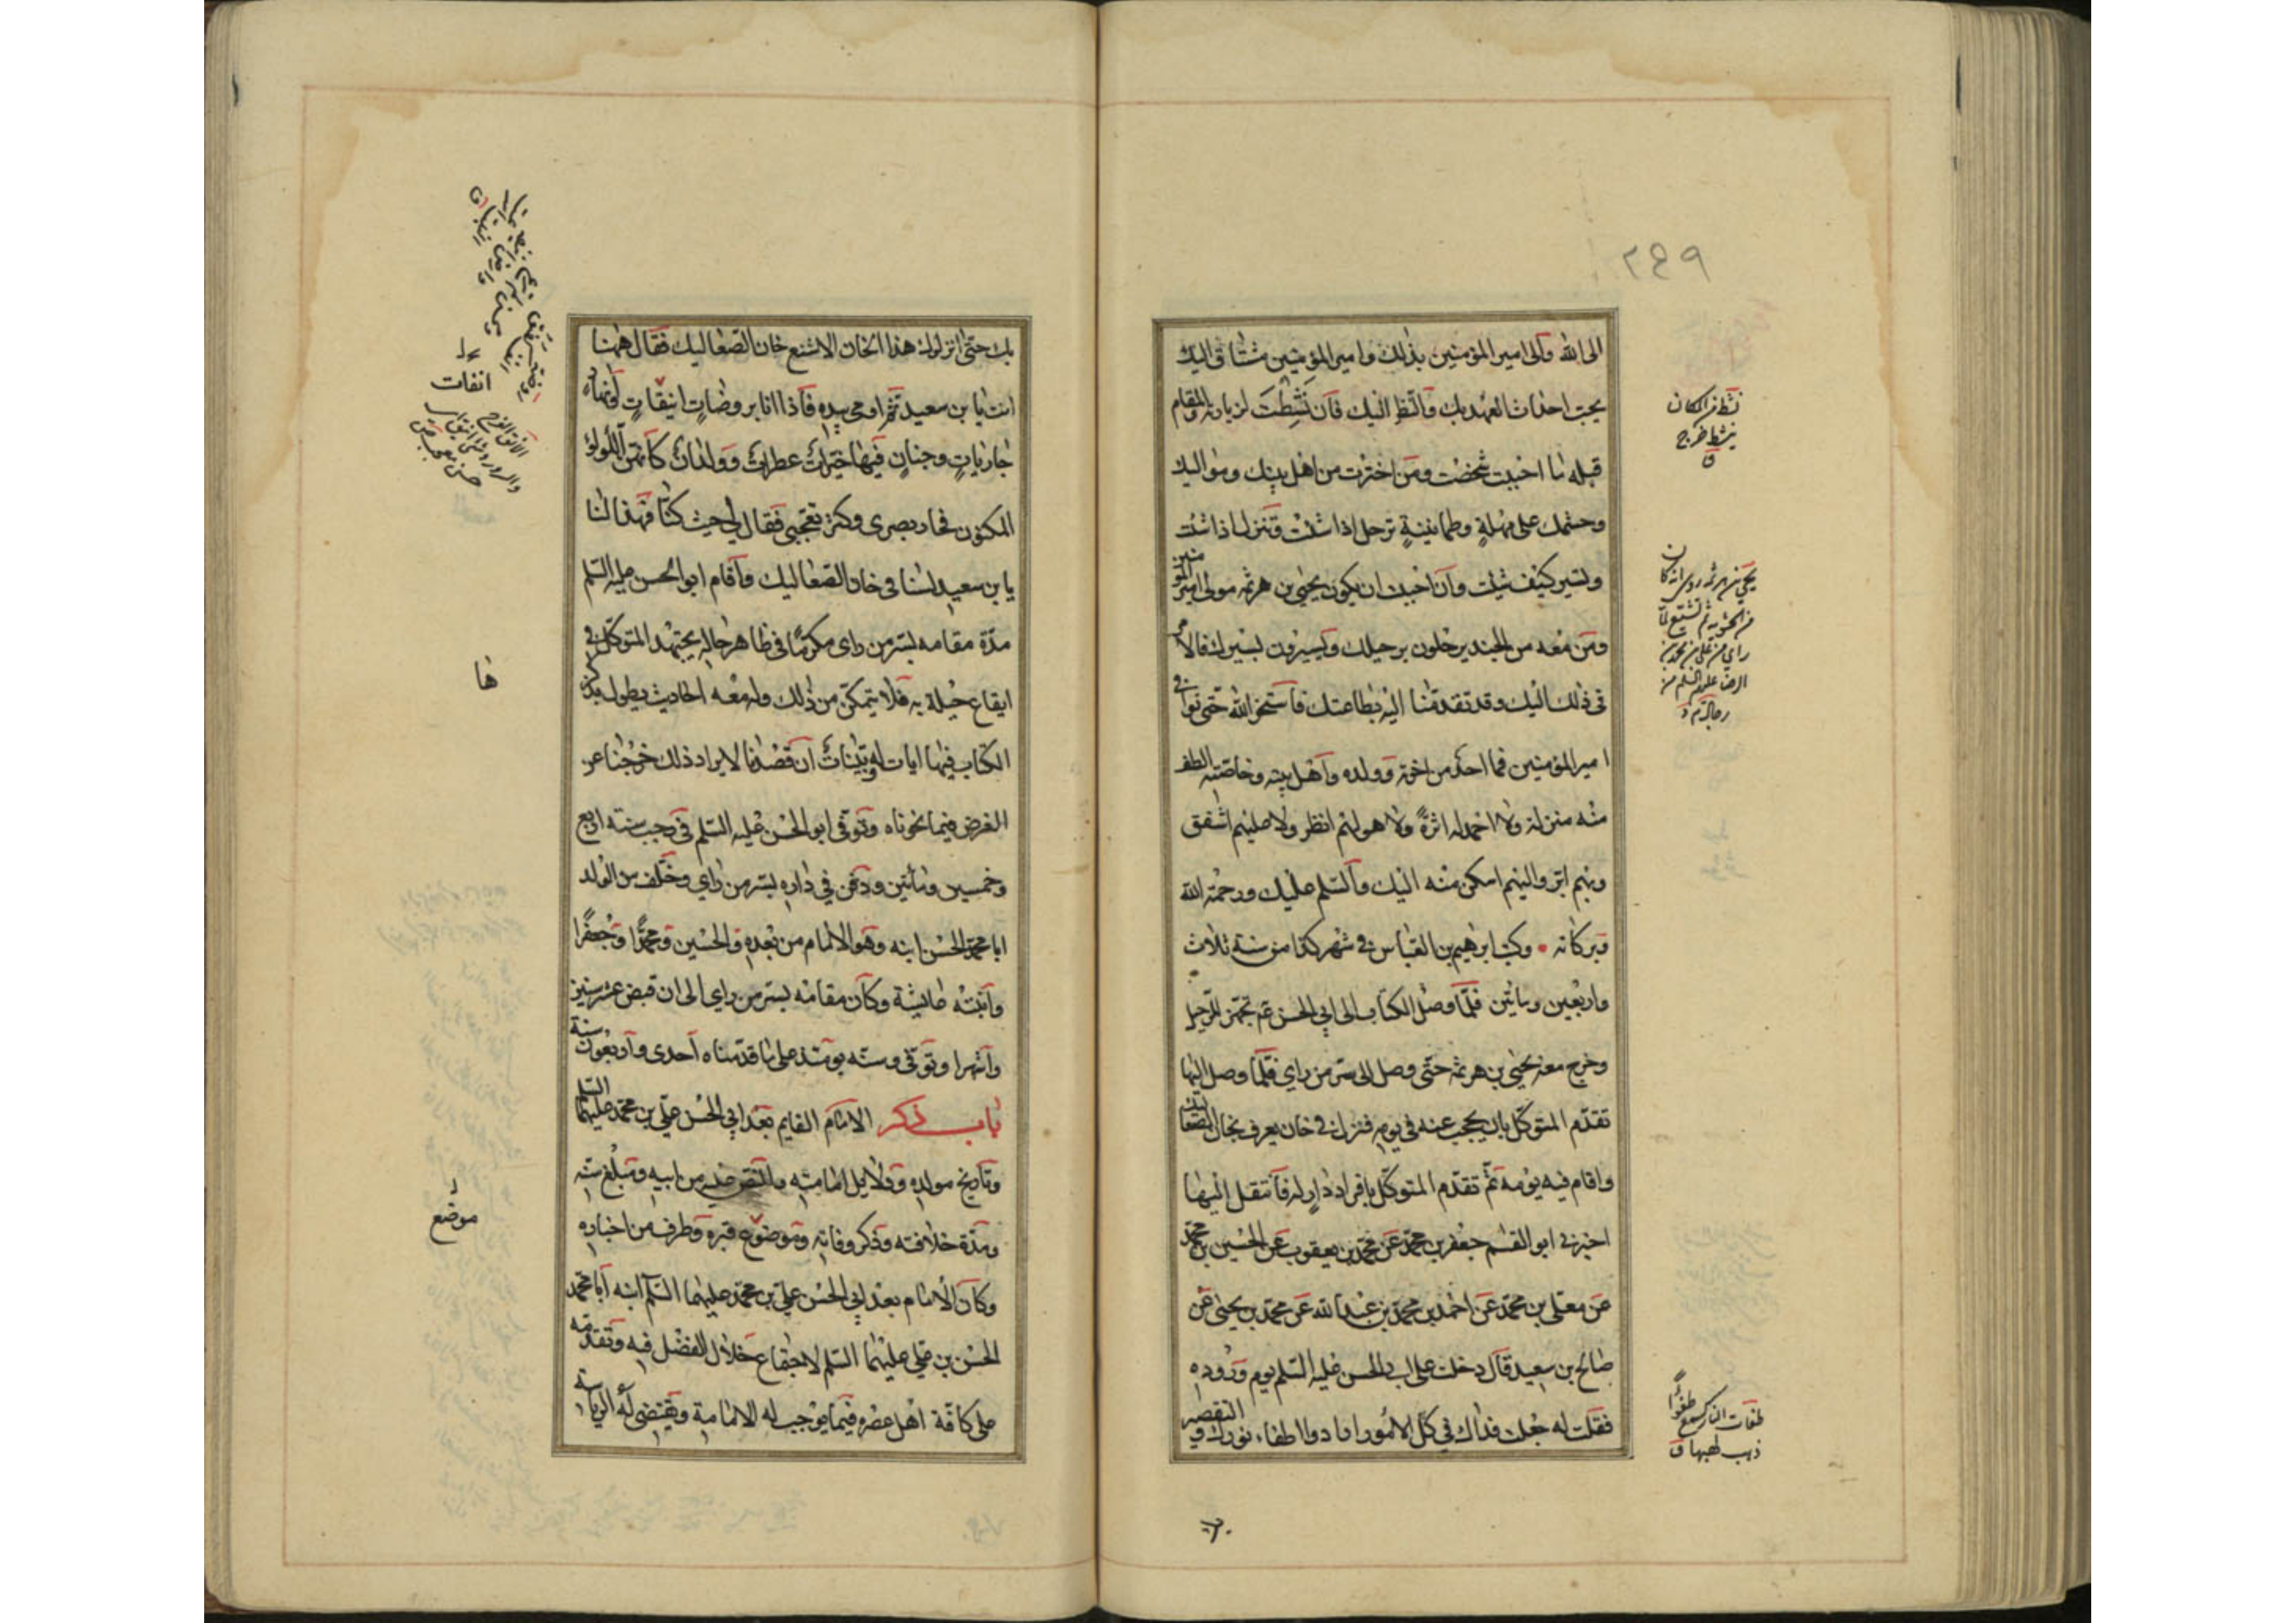 ٢٤٩
الى الله والى امير المؤمنين بذلك وامير المؤمنين مشتاق اليك
يحب احداث العهد بك والنظر اليك فان نشطت لزيارته والمقام
قبله ما احببت شخصت ومن اخترت من اهل بيتك ومواليك
وحشمك على مهلة وطمانينة ترحل اذا شئت وتنزل اذا شئت
وتسير كيف شئت وان احببت ان يكون يحيى بن هرثمه مولى امير المؤمنين
ومن معه من الجند يرحلون برحيلك ويسيرون بسيرك فالامر
في ذلك اليك وقد تقدمنا اليه بطاعتك فاستخر الله حتى توافي
امير المؤمنين فما احد من اخوته وولده واهل بيته وخاصته الطف
منه منزلة ولا احمد له اثرة ولا هو لهم انظر ولا عليهم اشفق
وبهم ابر واليهم اسكن منه اليك والسلم عليك ورحمة الله
وبركاته • وكتب ابرهيم بن العباس في شهر كذا من سنة ثلاث
واربعين ومائتين فلما وصل الكتاب الى ابي الحسن عم تجهز للرحيل
وخرج معه يحيى بن هرثمه حتى وصل الى سر من راي فلما وصل اليها
تقدم المتوكل بان يحجب عنه في يومه فنزل في خان يعرف بخان الصعاليك
واقام فيه يومه ثم تقدم المتوكل بافراد دار له فانتقل اليها
اخبرني ابو القسم جعفر بن محمد عن محمد بن يعقوب عن الحسين بن محمد
عن معلى بن محمد عن احمد بن محمد بن عبد الله عن محمد بن يحيى عن
صالح بن سعيد قال دخلت على ابي الحسن عليه السلم يوم وروده
فقلت له جعلت فداك في كل الامور ارادوا اطفاء نورك والتقصير
نشط من المكان
ينشط خرج
ق
يحيى بن هرثمه روى انه كان
من الحشويه ثم تشيع لما
راي من علي بن محمد بن
الرضا عليهم السلم من
طفئت النار كسمع طفؤا
ذهب لهبها ق
بك حتى انزلوك هذا الخان الاشنع خان الصعاليك فقال ههنا
انت يا بن سعيد ثم اومى بيده فاذا انا بروضات انيقات وانهار
جاريات وجنان فيها خيرات عطرات وولدان كانهن اللؤلؤ
المكنون فحار بصرى وكثر تعجبى فقال لي حيث كنا فهذا لنا
يا بن سعيد لسنا في خان الصعاليك واقام ابو الحسن عليه السلم
مدة مقامه بسر من راى مكرما في ظاهر حاله يجتهد المتوكل في
ايقاع حيلة به فلا يتمكن من ذلك وله معه احاديث يطول بذكرها
الكتاب فيها ايات له وبينات ان قصدنا لايراد ذلك خرجنا عن
الغرض فيما نحوناه وتوفى ابو الحسن عليه السلم في رجب سنة اربع
وخمسين ومائتين ودفن في داره بسر من راي وخلف من الولد
ابا محمد الحسن ابنه وهو الامام من بعده والحسين ومحمدا وجعفرا
وابنته عايشة وكان مقامه بسر من راي الى ان قبض عشر سنين
واشهرا وتوفى وسنه يومئذ على ما قدمناه احدى واربعون سنة
باب ذكر الامام القايم بعد ابي الحسن علي بن محمد عليهما السلم
وتاريخ مولده ودلايل امامته والنص عليه من ابيه ومبلغ سنه
ومدة خلافته وذكر وفاته وموضع قبره وطرف من اخباره
وكان الامام بعد ابي الحسن علي بن محمد عليهما السلم ابنه ابا محمد
الحسن بن علي عليهما السلم لاجتماع خلال الفضل فيه وتقدمه
على كافة اهل عصره فيما يوجب له الامامة ويقتضى له الرياسة
انفات
ها
موضع